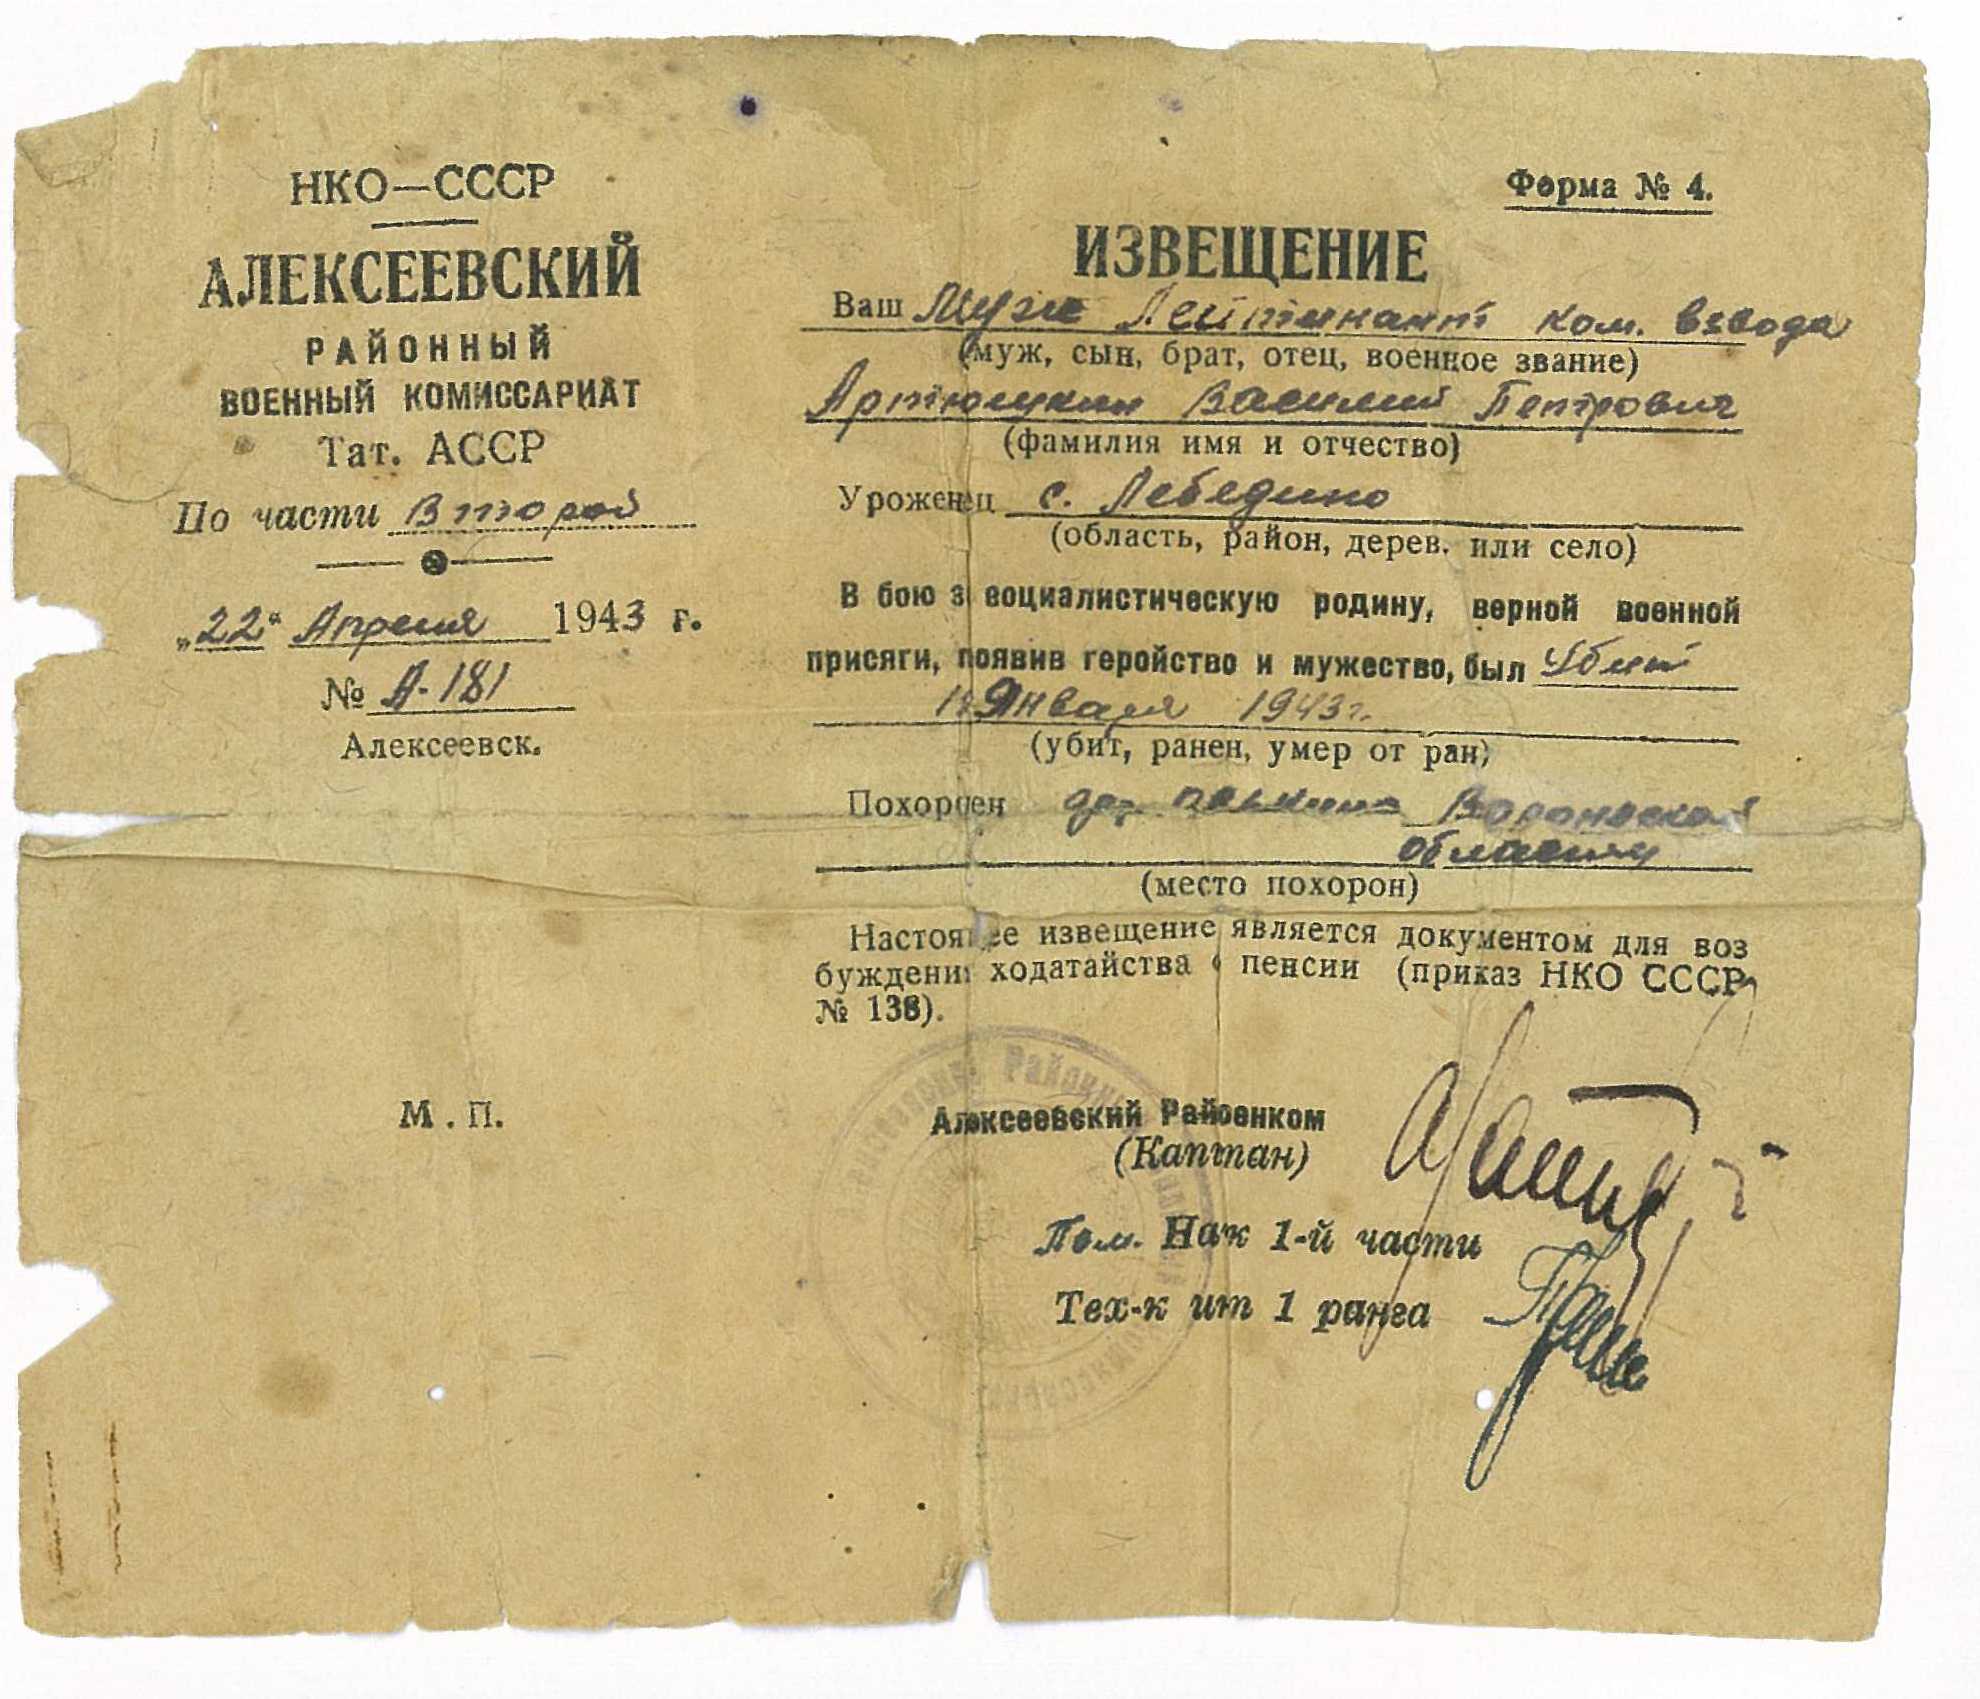 НКО—СССР
АЛЕКСЕЕВСКИЙ
РАЙОННЫЙ
ВОЕННЫЙ КОМИССАРИАТ
Тат. АССР
По части Второй
„22“ Апреля 1943 г.
№ А-181
Алексеевск.
М. П.
Форма № 4.
ИЗВЕЩЕНИЕ
Ваш Муж Лейтинант ком. взвода
(муж, сын, брат, отец, военное звание)
Артюшкин Василий Петрович
(фамилия имя и отчество)
Уроженец с. Лебедино
(область, район, дерев. или село)
В бою з социалистическую родину, верной военной
присяги, появив геройство и мужество, был Убит
Января 1943 г.
(убит, ранен, умер от ран)
Похоронен дер. Воронежской
области
(место похорон)
Настоящее извещение является документом для воз
буждения ходатайства о пенсии (приказ НКО СССР
№ 138).
Алексеевский Райвоенком
(Каптан)
Пом. Нач 1-й части
Тех-к инт 1 ранга